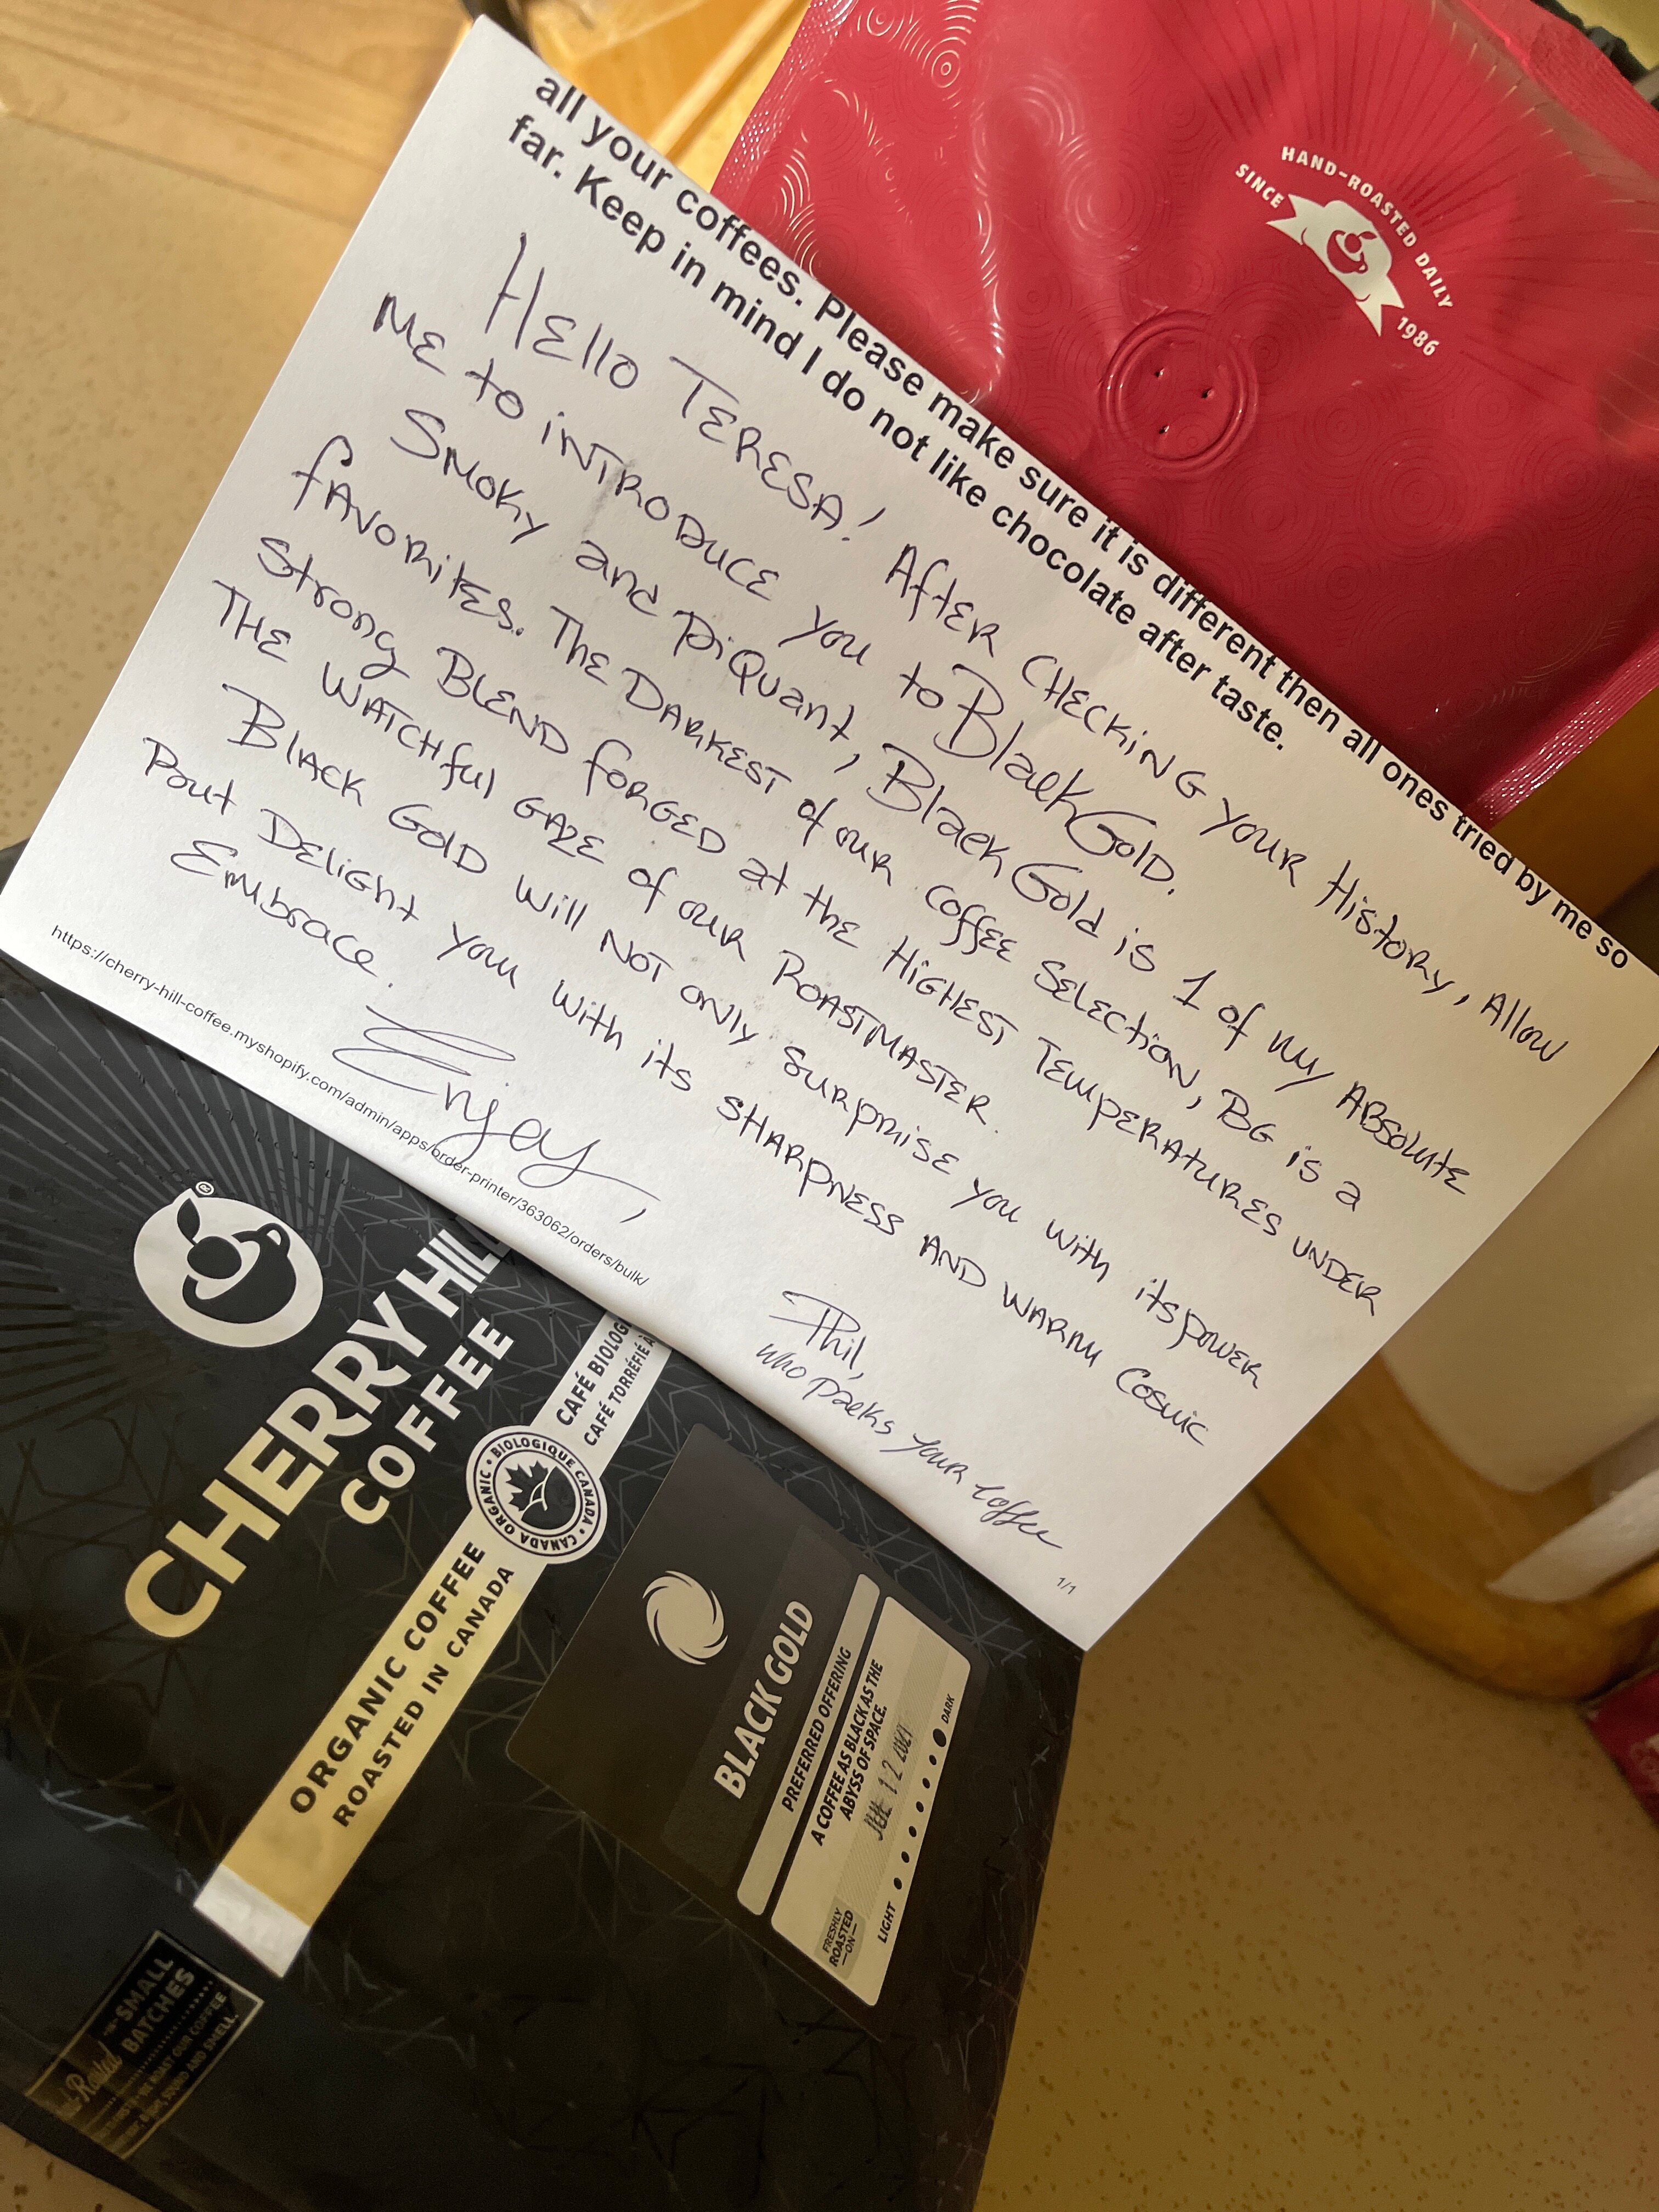 all your coffees. Please make sure it is different then all ones tried by me so
far. Keep in mind I do not like chocolate after taste.
HELLO TERESA! AFTER CHECKING YOUR HISTORY, ALLOW
ME to INTRODUCE YOU to Black Gold.
SMOKY and PiQuant, Black Gold is 1 of my ABSOLUTE
fAVORITES. THE DARKEST of our COFFEE SELECTION, BG is a
Strong BLEND FORGED at the HIGHEST TEMPERATURES UNDER
THE WATCHful GAZE of our ROASTMASTER.
BLACK GOLD will NOT ONLY SURPRISE you with its POWER
but DELIGHT you with its SHARPNESS AND WARM COSMIC
Embrace.
Enjoy,
Phil,
who packs your coffee
https://cherry-hill-coffee.myshopify.com/admin/apps/order-printer/363062/orders/bulk/
1/1
HAND-ROASTED DAILY
SINCE 1986
®
CHERRY HILL
COFFEE
ORGANIC COFFEE
ROASTED IN CANADA
CANADA ORGANIC • BIOLOGIQUE CANADA •
CAFÉ BIOLOG
CAFÉ TORRÉFIÉ À
BLACK GOLD
PREFERRED OFFERING
A COFFEE AS BLACK AS THE
ABYSS OF SPACE.
FRESHLY
ROASTED
—ON—
12 2021
LIGHT DARK
Roasted
SMALL
BATCHES
WE ROAST OUR COFFEE
SOUND AND SMELL.